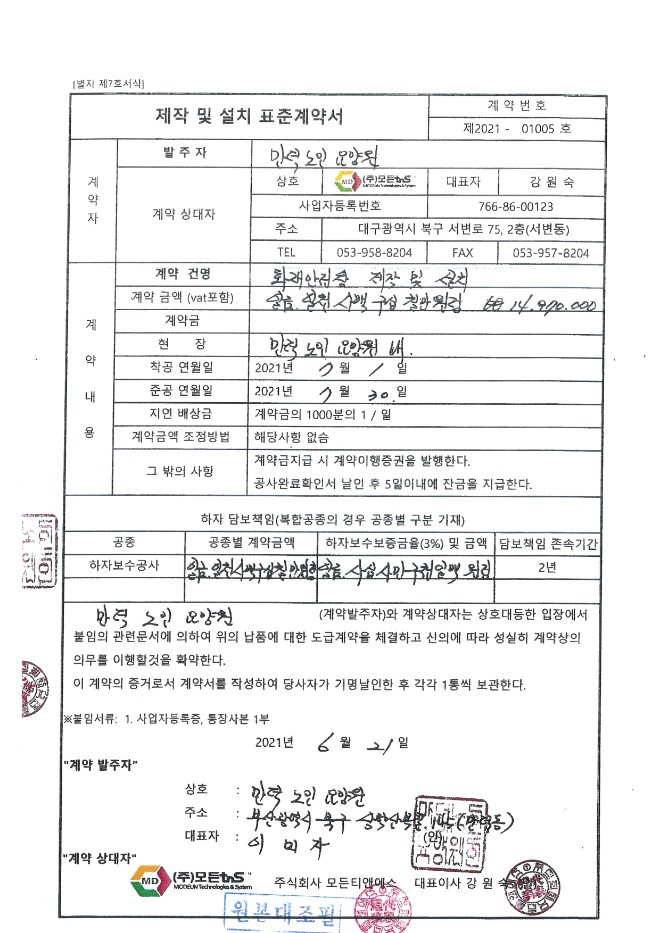 [별지 제7호서식]
제작 및 설치 표준계약서
계 약 번 호
제2021 - 01005 호
계약자
발 주 자
만덕 노인 요양원
계약 상대자
상호
MD (주)모든tnS MODEUN Technologies & System
대표자
강 원 숙
사업자등록번호
766-86-00123
주소
대구광역시 북구 서변로 75, 2층(서변동)
TEL
053-958-8204
FAX
053-957-8204
계약내용
계약 건명
화재안전창 제작 및 설치
계약 금액 (vat포함)
일금 일천 사백 구십 칠만원정 14,970,000
계약금
현 장
만덕 노인 요양원 내.
착공 연월일
2021년 7 월 1 일
준공 연월일
2021년 7 월 30. 일
지연 배상금
계약금의 1000분의 1 / 일
계약금액 조정방법
해당사항 없슴
그 밖의 사항
계약금지급 시 계약이행증권을 발행한다.
공사완료확인서 날인 후 5일이내에 잔금을 지급한다.
하자 담보책임(복합공종의 경우 공종별 구분 기재)
공종
공종별 계약금액
하자보수보증금율(3%) 및 금액
담보책임 존속기간
하자보수공사
일금 일천사백구십칠만원정
일금 사십사만구천일백 원정
2년
만덕 노인 요양원 (계약발주자)와 계약상대자는 상호대등한 입장에서
붙임의 관련문서에 의하여 위의 납품에 대한 도급계약을 체결하고 신의에 따라 성실히 계약상의
의무를 이행할것을 확약한다.
이 계약의 증거로서 계약서를 작성하여 당사자가 기명날인한 후 각각 1통씩 보관한다.
※붙임서류: 1. 사업자등록증, 통장사본 1부
2021년 6 월 21 일
"계약 발주자"
상호 : 만덕 노인 요양원
주소 : 부산광역시 북구 (만덕동)
대표자 : 이 미 자 (인)
"계약 상대자"
MD (주)모든tnS MODEUN Technologies & System
주식회사 모든티앤에스 대표이사 강 원 숙
원본대조필